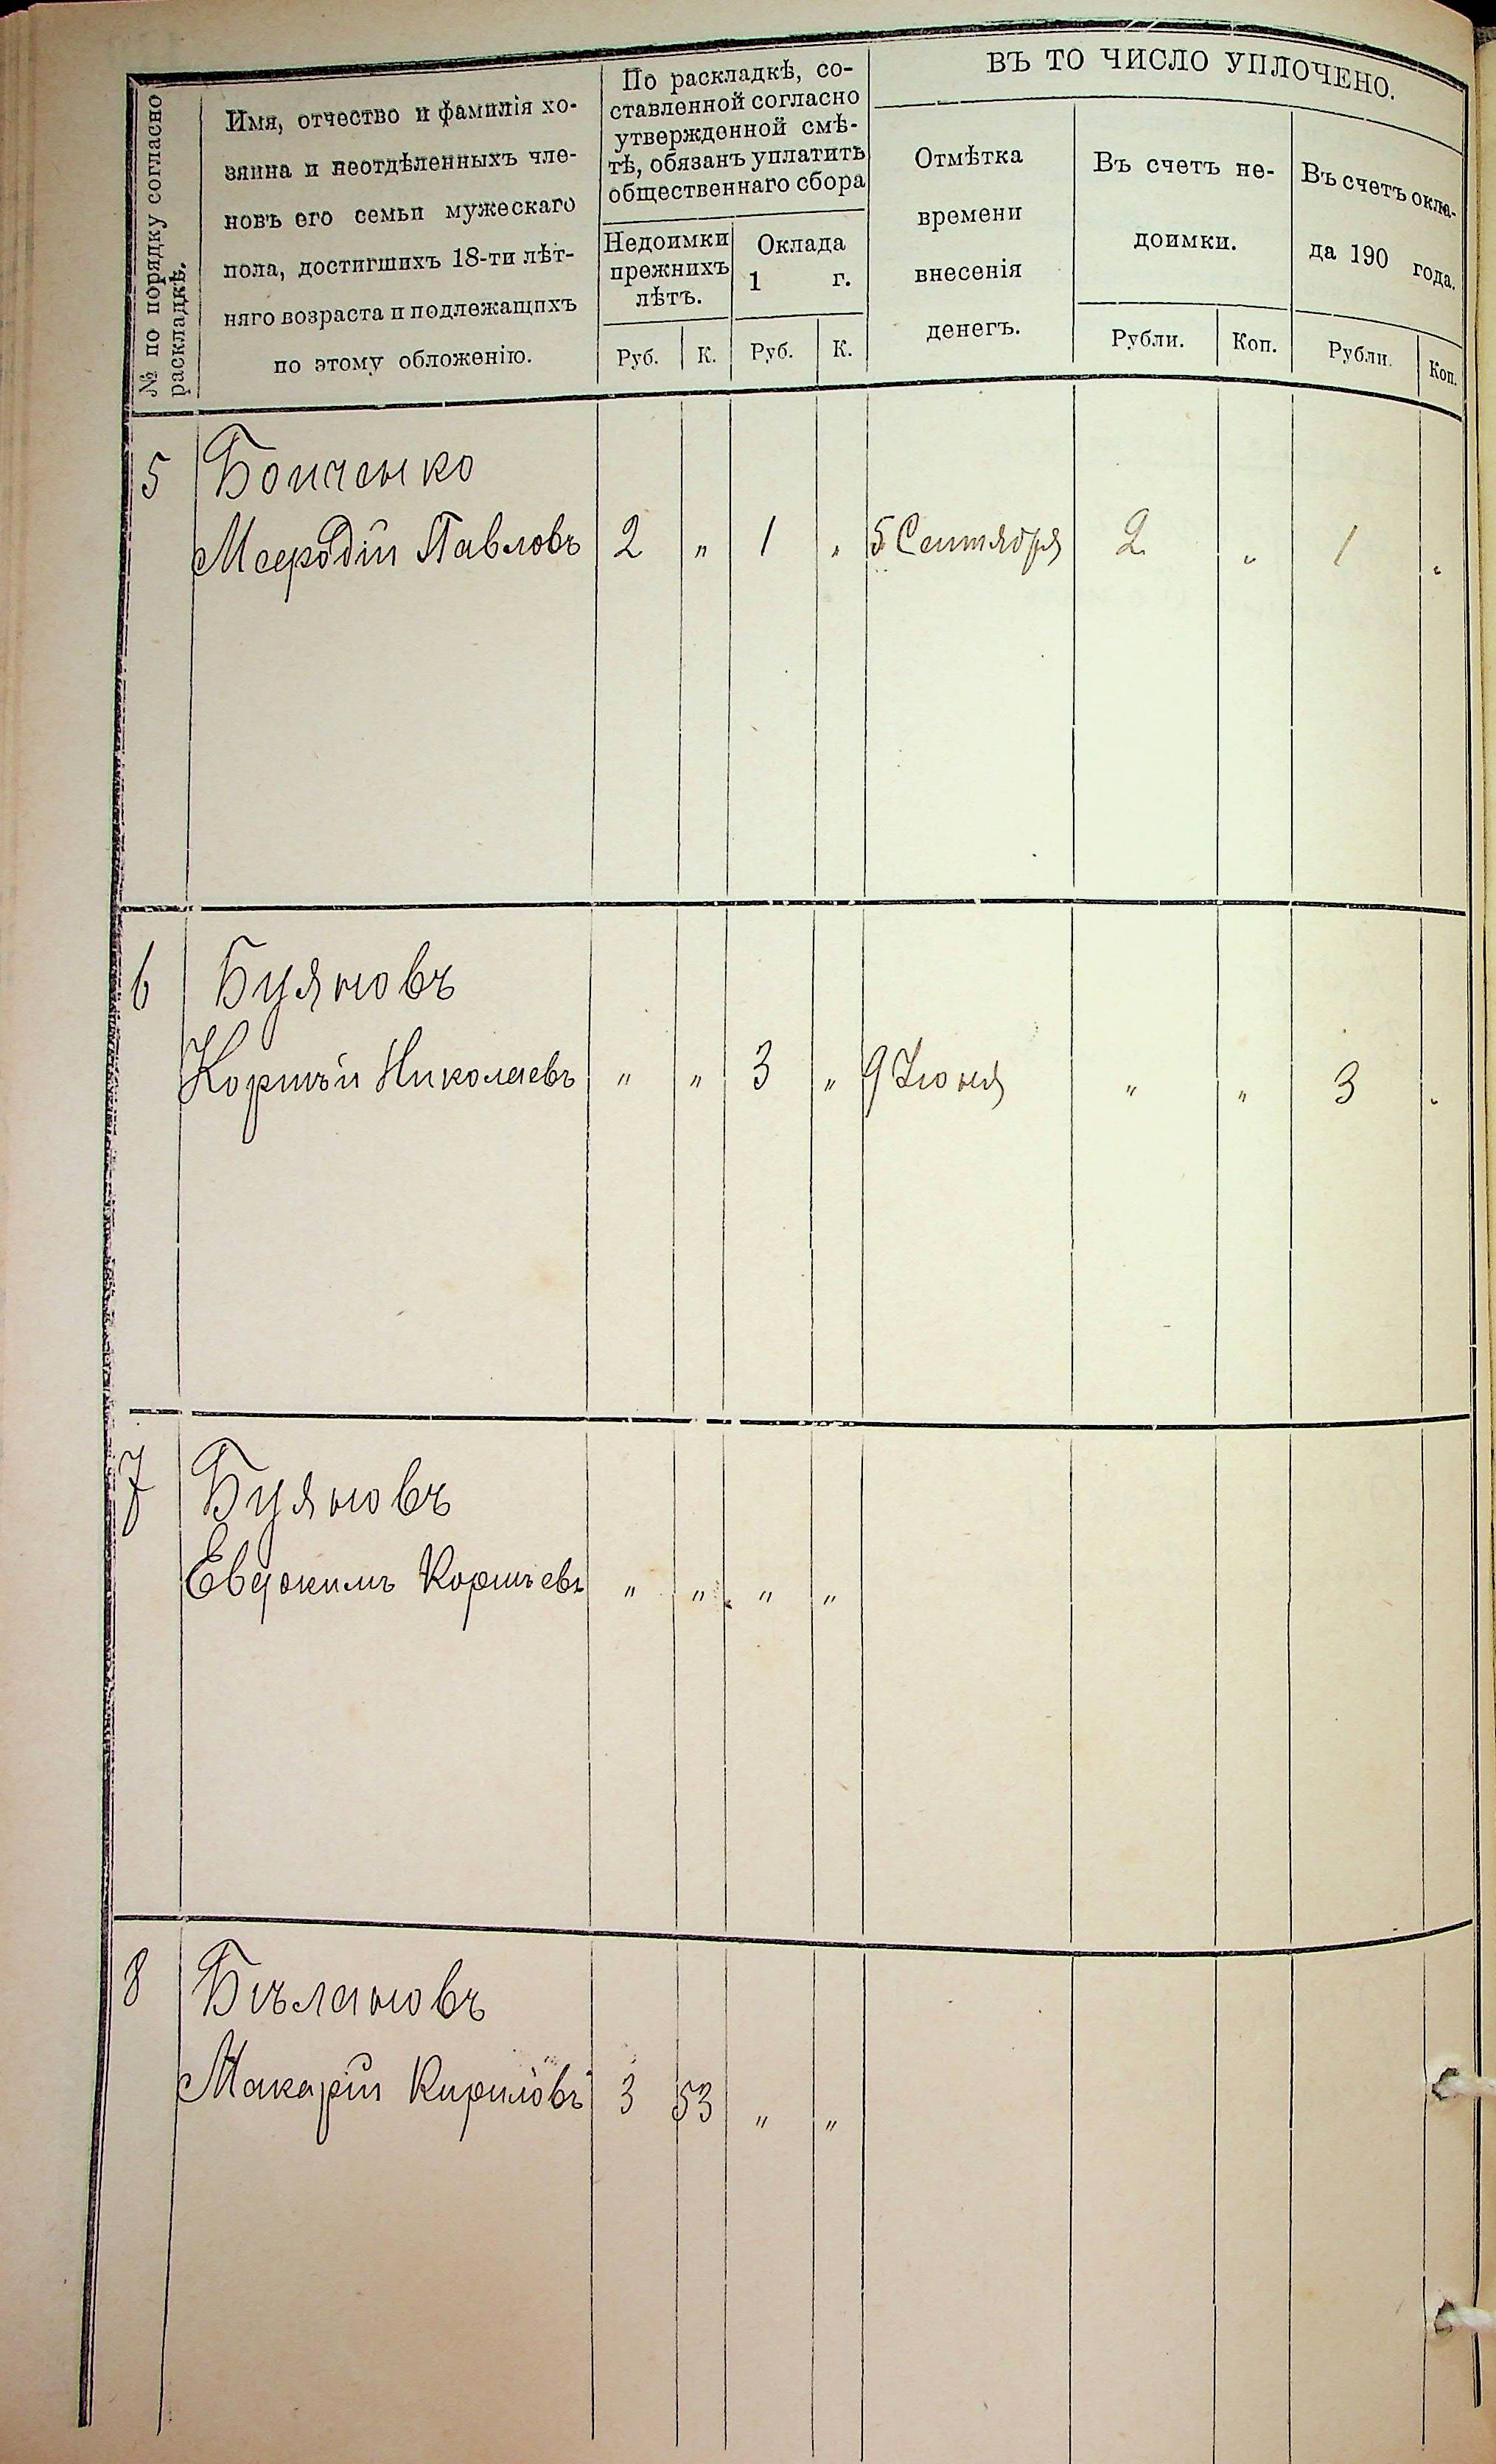 № по порядку согласно
раскладкѣ.
Имя, отчество и фамилія хо-
зяина и неотдѣленныхъ чле-
новъ его семьи мужескаго
пола, достигшихъ 18-ти лѣт-
няго возраста и подлежащихъ
по этому обложенію.
По раскладкѣ, со-
ставленной согласно
утвержденной смѣ-
тѣ, обязанъ уплатить
общественнаго сбора
Недоимки
прежнихъ
лѣтъ.
Руб. К.
Оклада
1 г.
Руб. К.
ВЪ ТО ЧИСЛО УПЛОЧЕНО.
Отмѣтка
времени
внесенія
денегъ.
Въ счетъ не-
доимки.
Рубли. Коп.
Въ счетъ окла-
да 190 года.
Рубли. Коп.
5 Бойченко
Меѳодій Павловъ 2 „ 1 „ 5 Сентября 2 „ 1 „
6 Буяновъ
Корнѣй Николаевъ „ „ 3 „ 9 Іюня „ „ 3 „
7 Буяновъ
Евдокимъ Корнѣевъ „ „ „ „
8 Бѣлановъ
Макарій Кириловъ 3 53 „ „